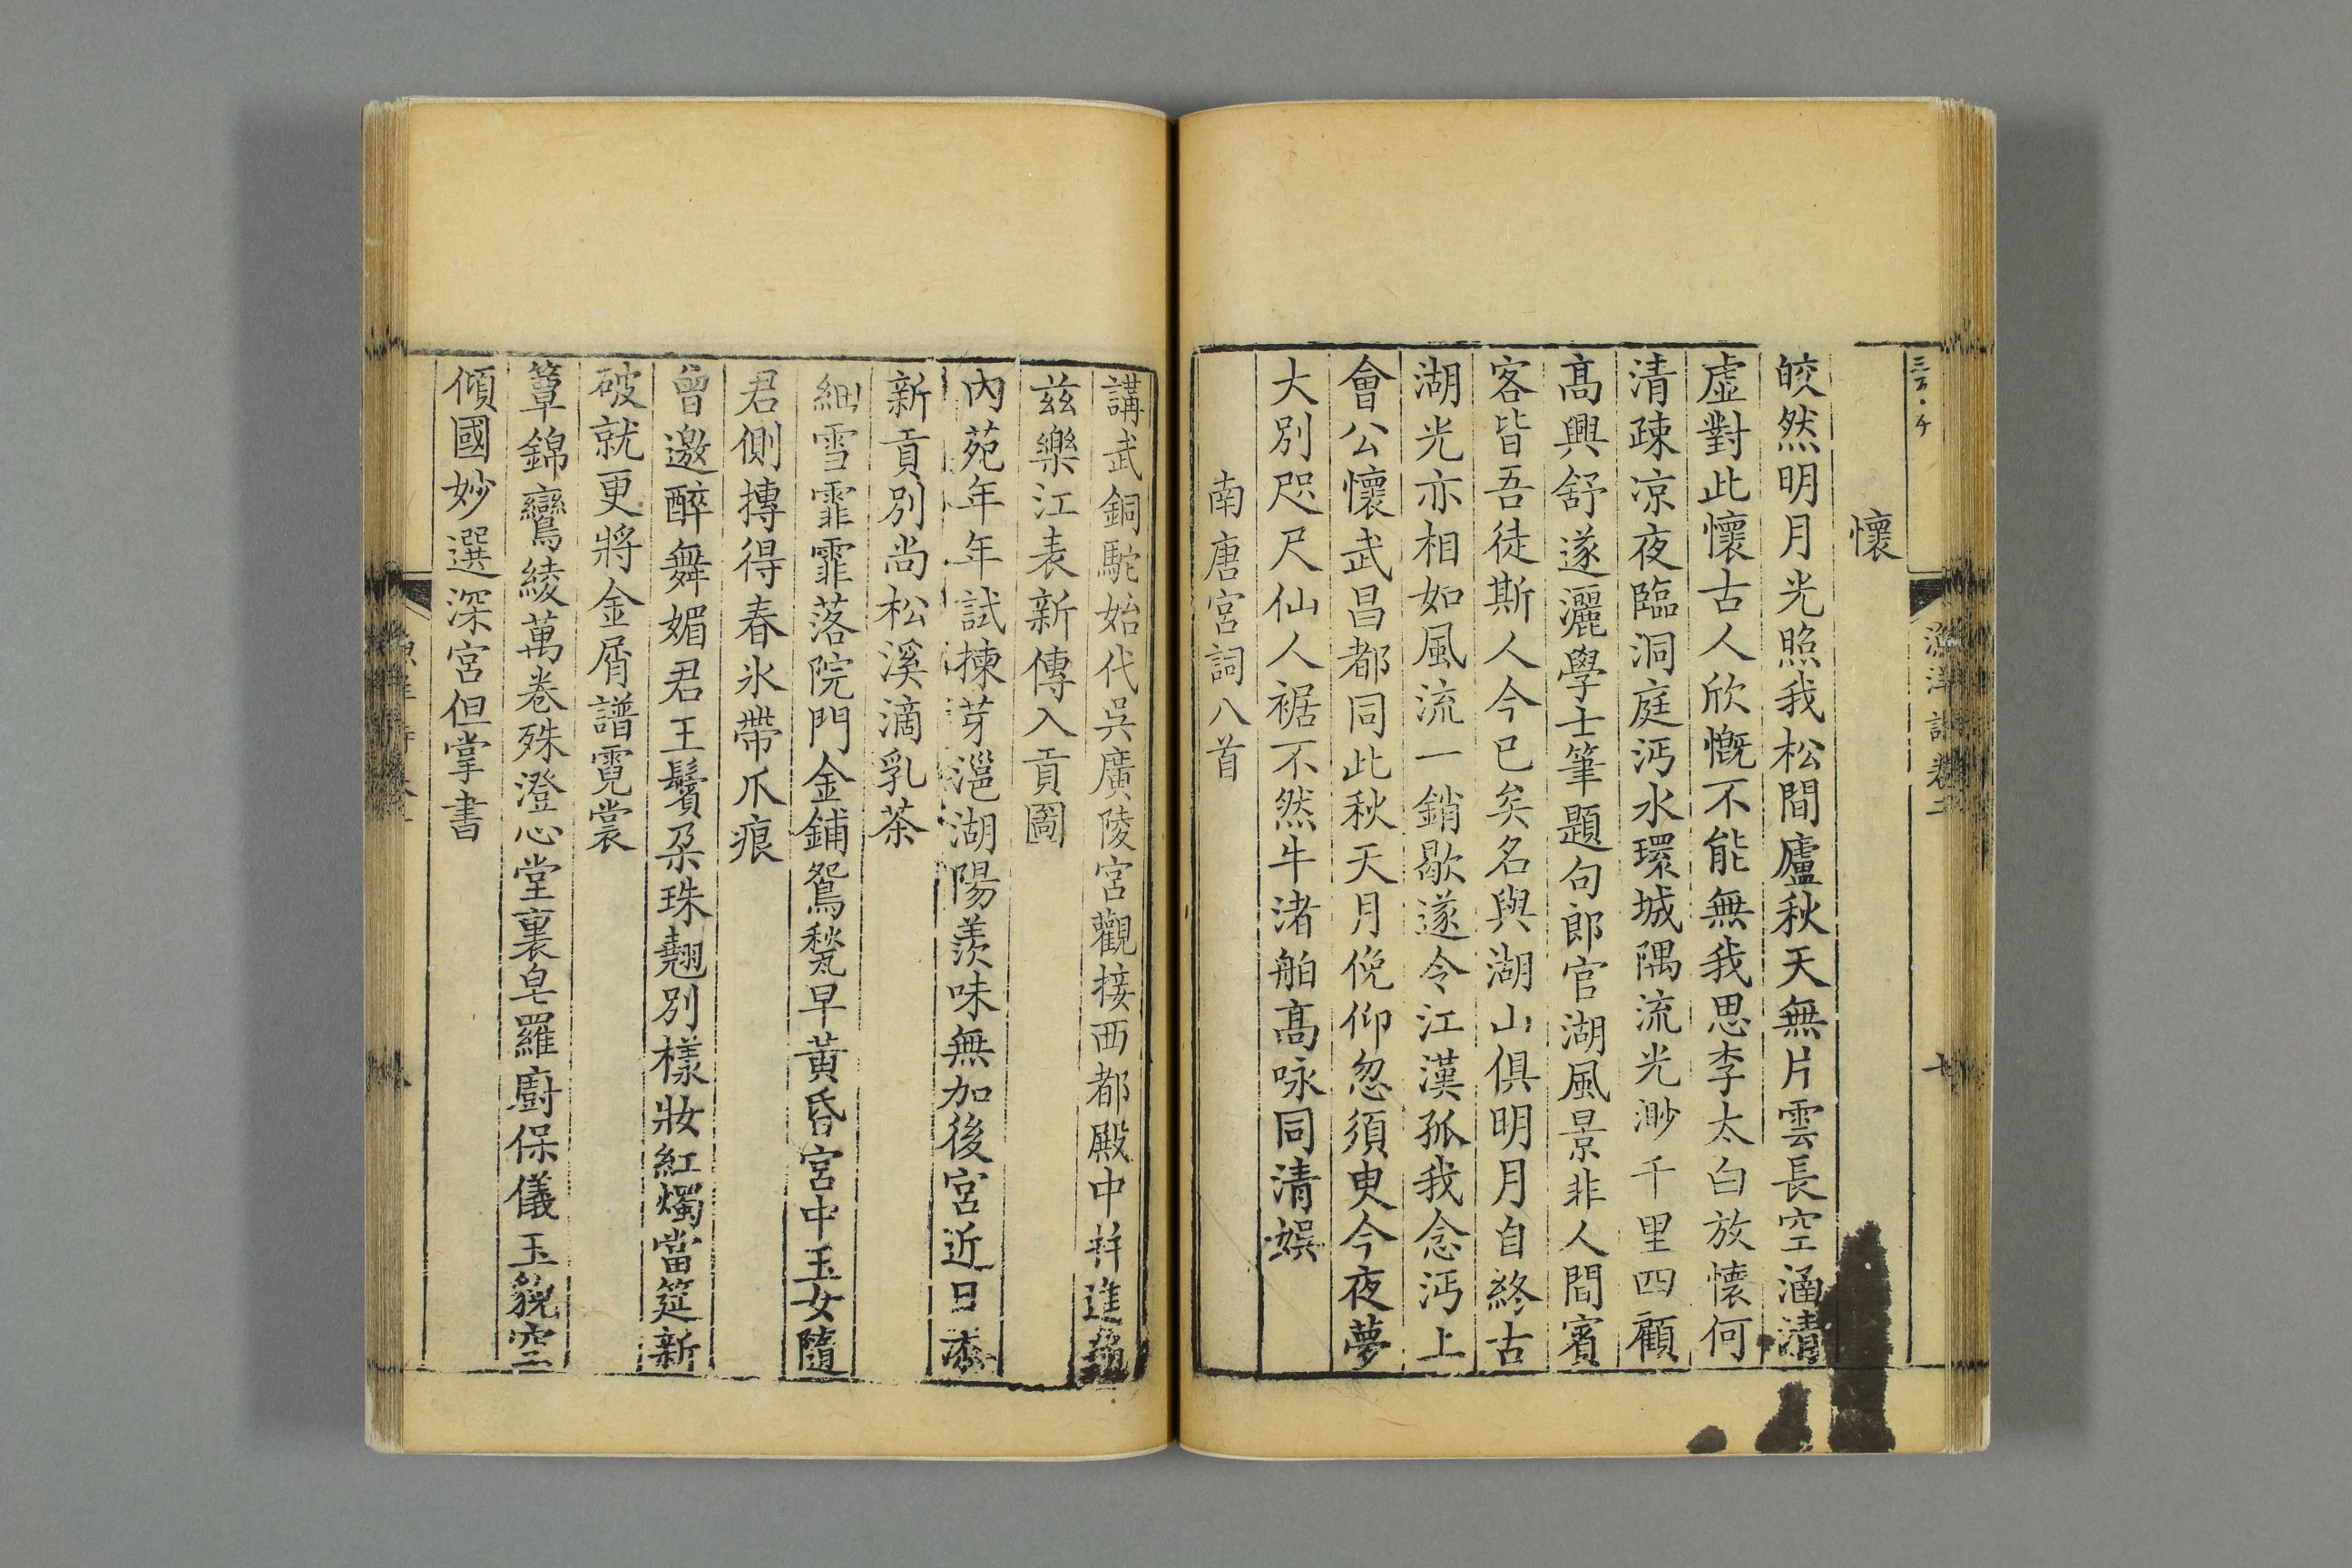 懷
皎然明月光照我松間廬秋天無片雲長空涵清
虛對此懷古人欣慨不能無我思李太白放懷何
清疎凉夜臨洞庭沔水環城隅流光渺千里四顧
高興舒遂灑學士筆題句郎官湖風景非人間賓
客皆吾徒斯人今已矣名與湖山俱明月自終古
湖光亦相如風流一銷歇遂令江漢孤我念沔上
會公懷武昌都同此秋天月俛仰忽須臾今夜夢
大別咫尺仙人裾不然牛渚舶高咏同清娛
南唐宮詞八首
講武銅駝始代吳廣陵宮觀接西都殿中并進
兹樂江表新傳入貢圖
內苑年年試揀芽㴩湖陽羨味無加後宮近日添
新貢別尚松溪滴乳茶
細雪霏霏落院門金鋪鴛甃早黃昏宮中玉女隨
君側摶得春氷帶爪痕
曾邀醉舞媚君王鬢朶珠翹別樣妝紅燭當筵新
破就更將金屑譜霓裳
簟錦鸞綾萬卷殊澄心堂裏皂羅廚保儀玉貌空
傾國妙選深宮但掌書